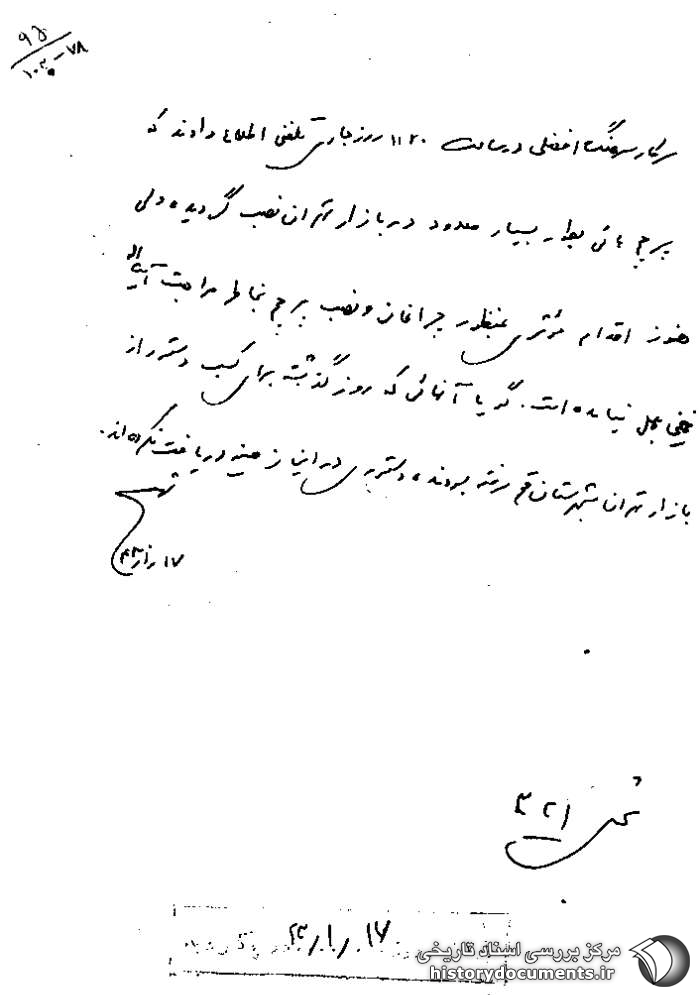 ۹۵
۷۸-۱۰۳۰
سرکار سرهنگ افضلی در ساعت ۱۱۲۰ روز جاری تلفنی اطلاع دادند که
پرچم هائی بطور بسیار معدود در بازار تهران نصب گردیده ولی
هنوز اقدام مؤثری بمنظور چراغان و نصب پرچم بخاطر مراجعت آیه اله
خمینی بعمل نیامده است. گویا آنهائی که روز گذشته برای کسب دستور از
بازار تهران بشهرستان قم رفته بودند دستوری در این زمینه دریافت نکرده‌اند.
۱۷ر۱ر۴۳
۳۲۱
۱۷ر۱ر۴۳
مرکز بررسی اسناد تاریخی
historydocuments.ir